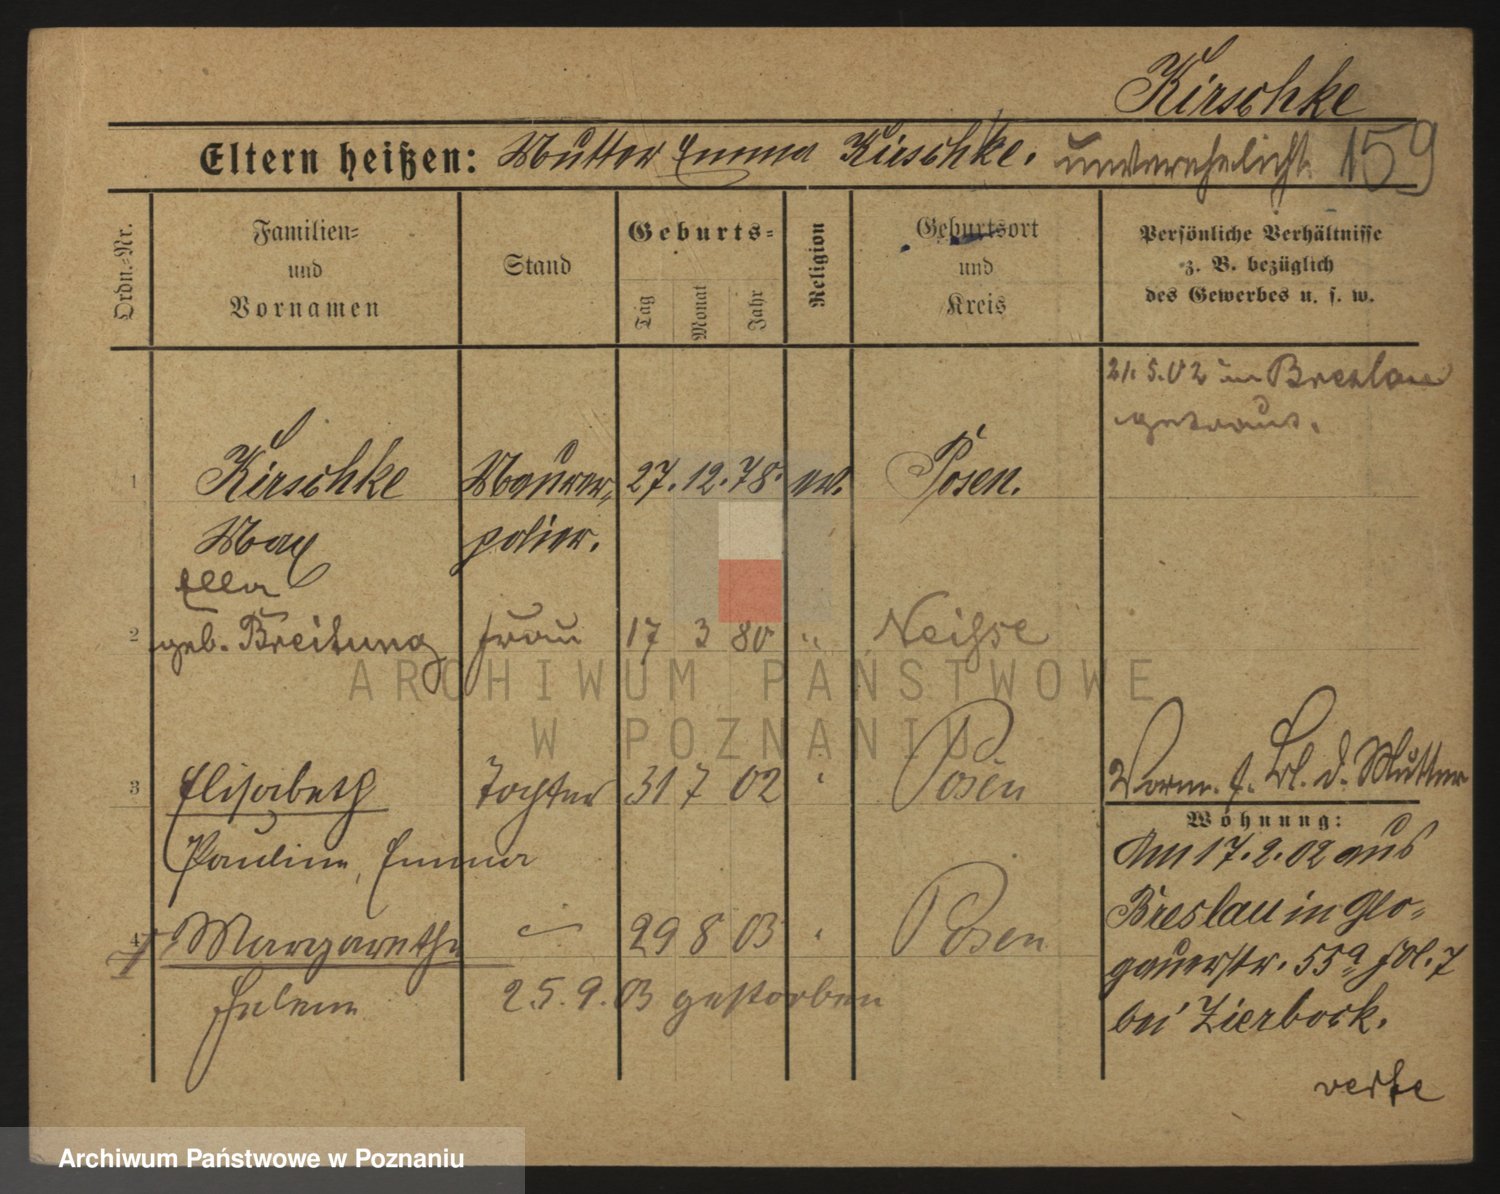 Kirschke
Eltern heißen: Mutter Emma Kirschke. unverehelicht. 159
Ordn.-Nr.
Familien-
und
Vornamen
Stand
Geburts-
Tag
Monat
Jahr
Religion
Geburtsort
und
Kreis
Persönliche Verhältnisse
z. B. bezüglich
des Gewerbes u. s. w.
21.5.02 in Breslau
getraut.
1 Kirschke Maurer- 27. 12. 78. ev. Posen.
Max polier.
Ella
2 geb. Breitung Frau 17 3 80 " Neisse
ARCHIWUM PAŃSTWOWE
W POZNANIU
3 Elisabeth Tochter 31 7 02 " Posen
Vorm. f. Bl. d. Mutter
Pauline, Emma
4 Margarethe " 29 8 03 " Posen
Helene 25.9.03 gestorben
Wohnung:
Am 17.2.02 aus
Breslau in Glo-
gauerstr. 55a, Hol. 7
bei Zierbock.
Archiwum Państwowe w Poznaniu